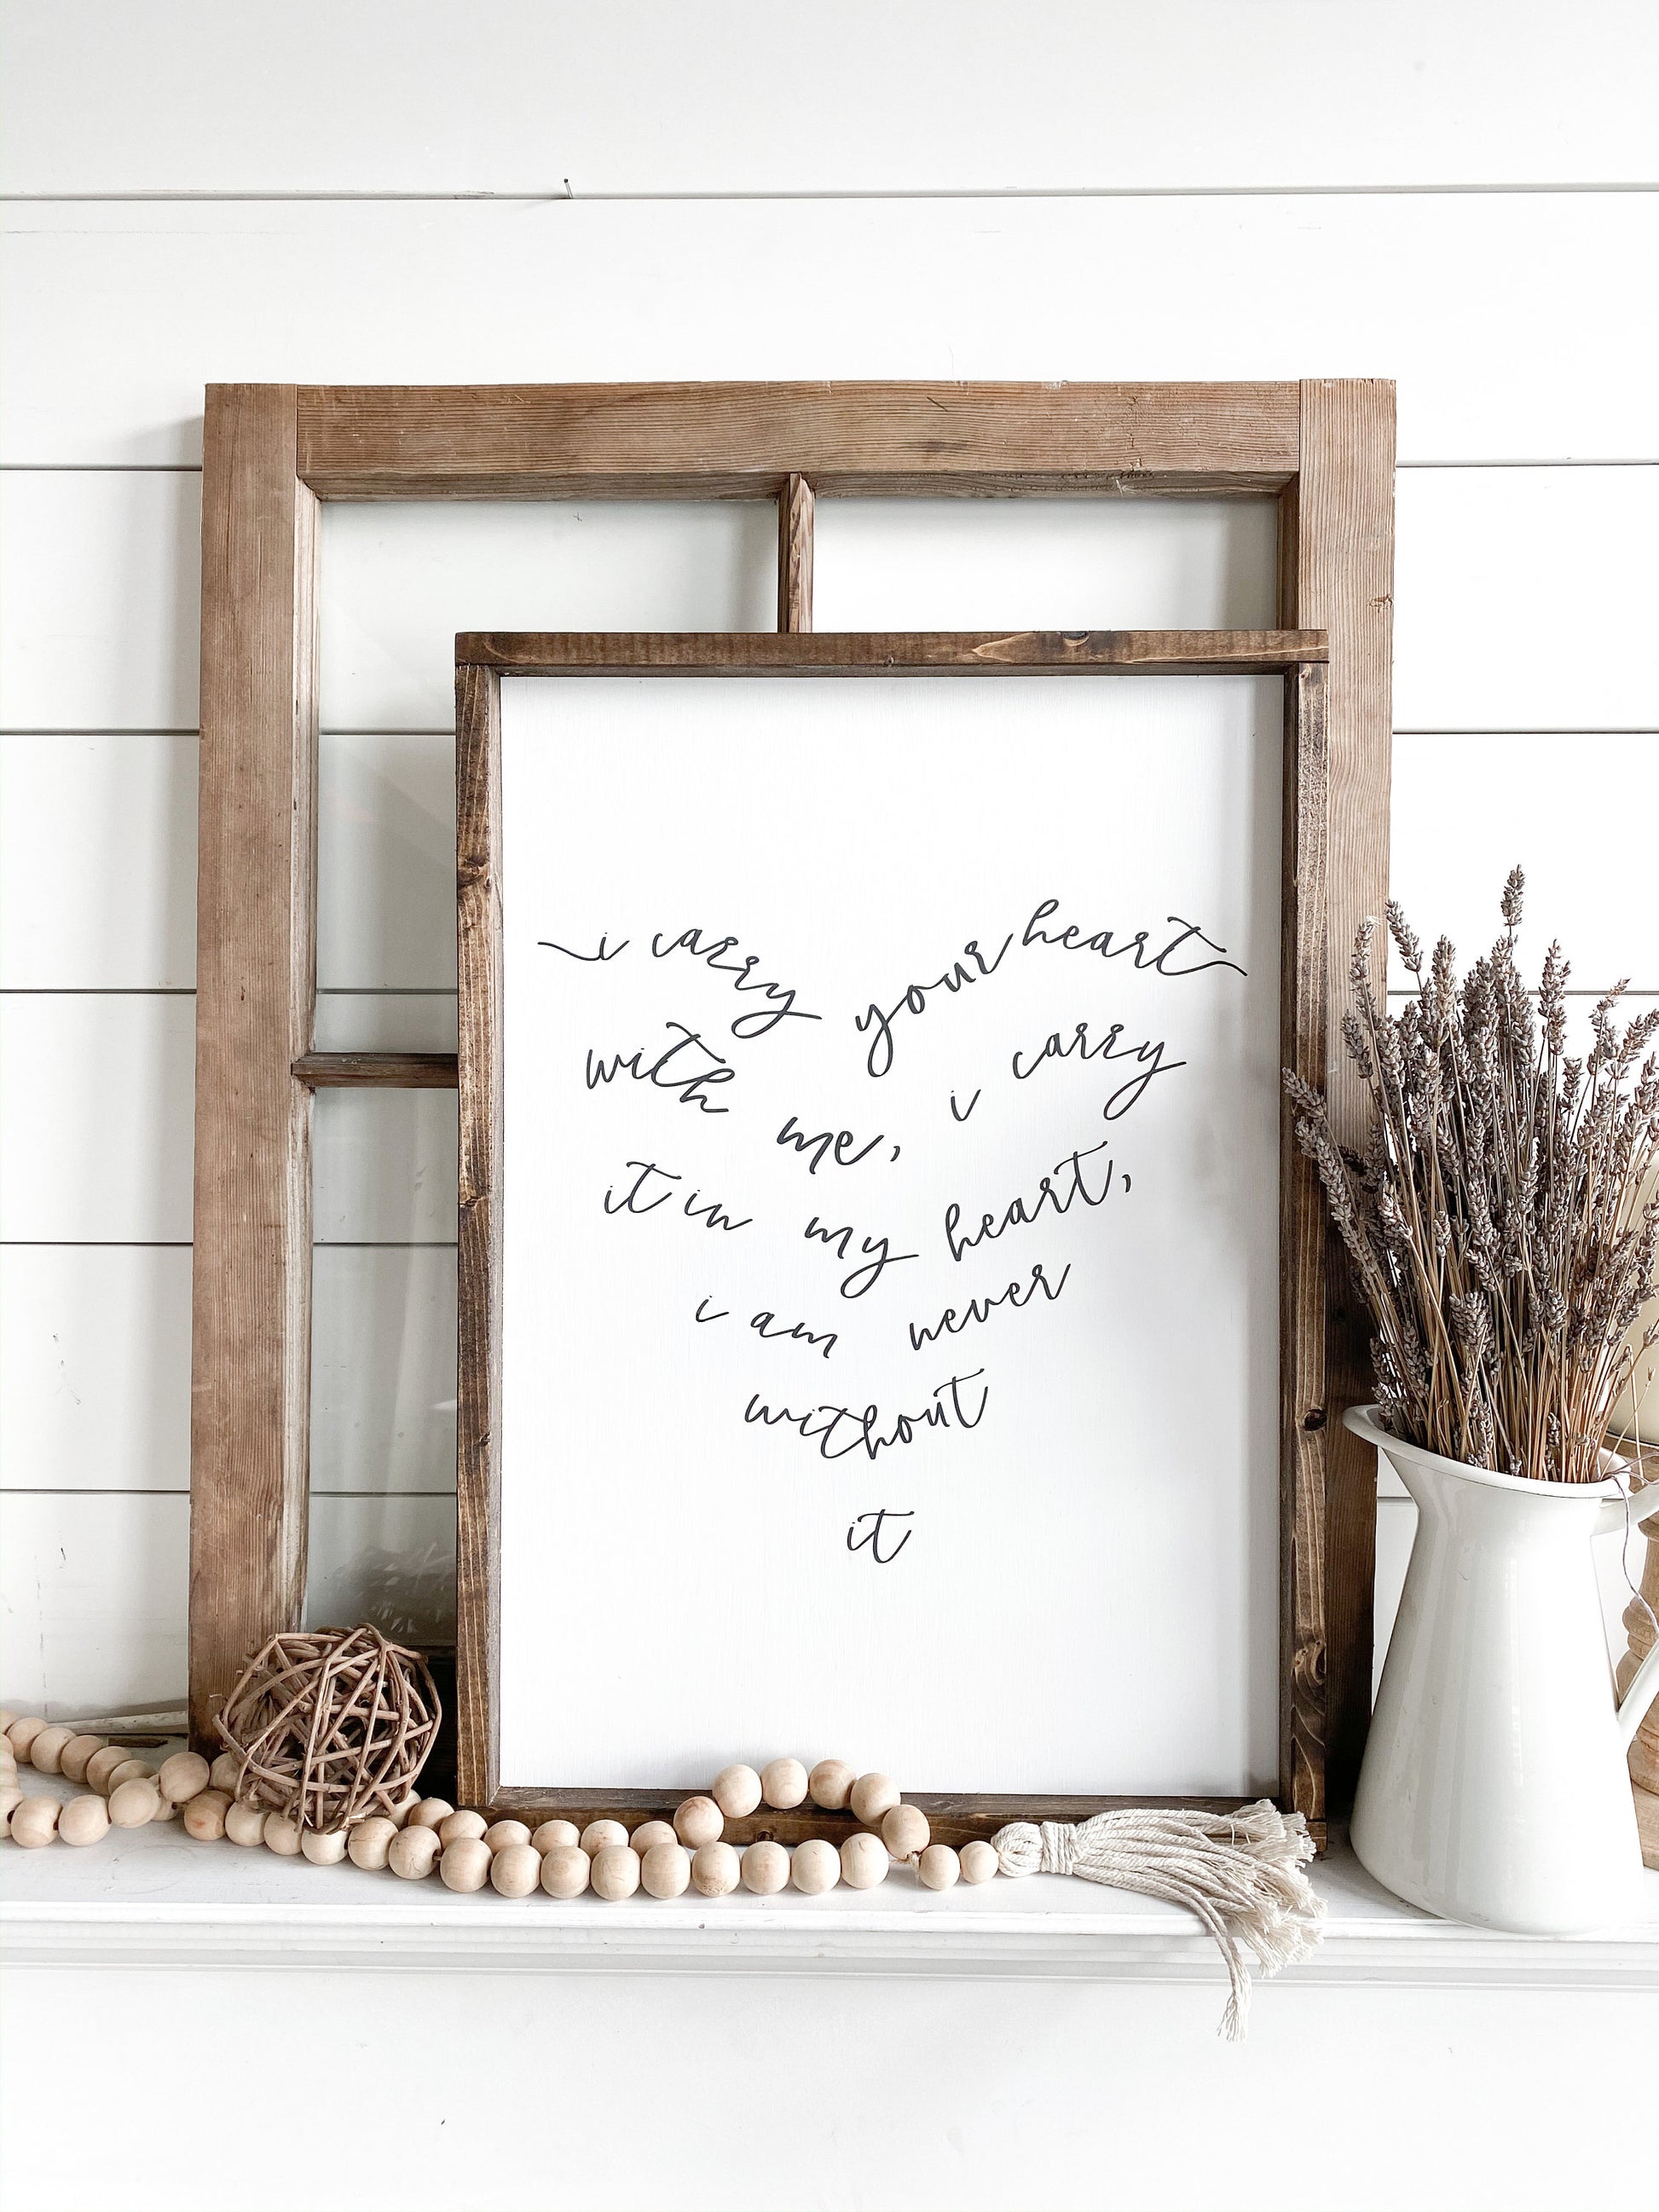 i carry your heart
with me, i carry
it in my heart,
i am never
without
it